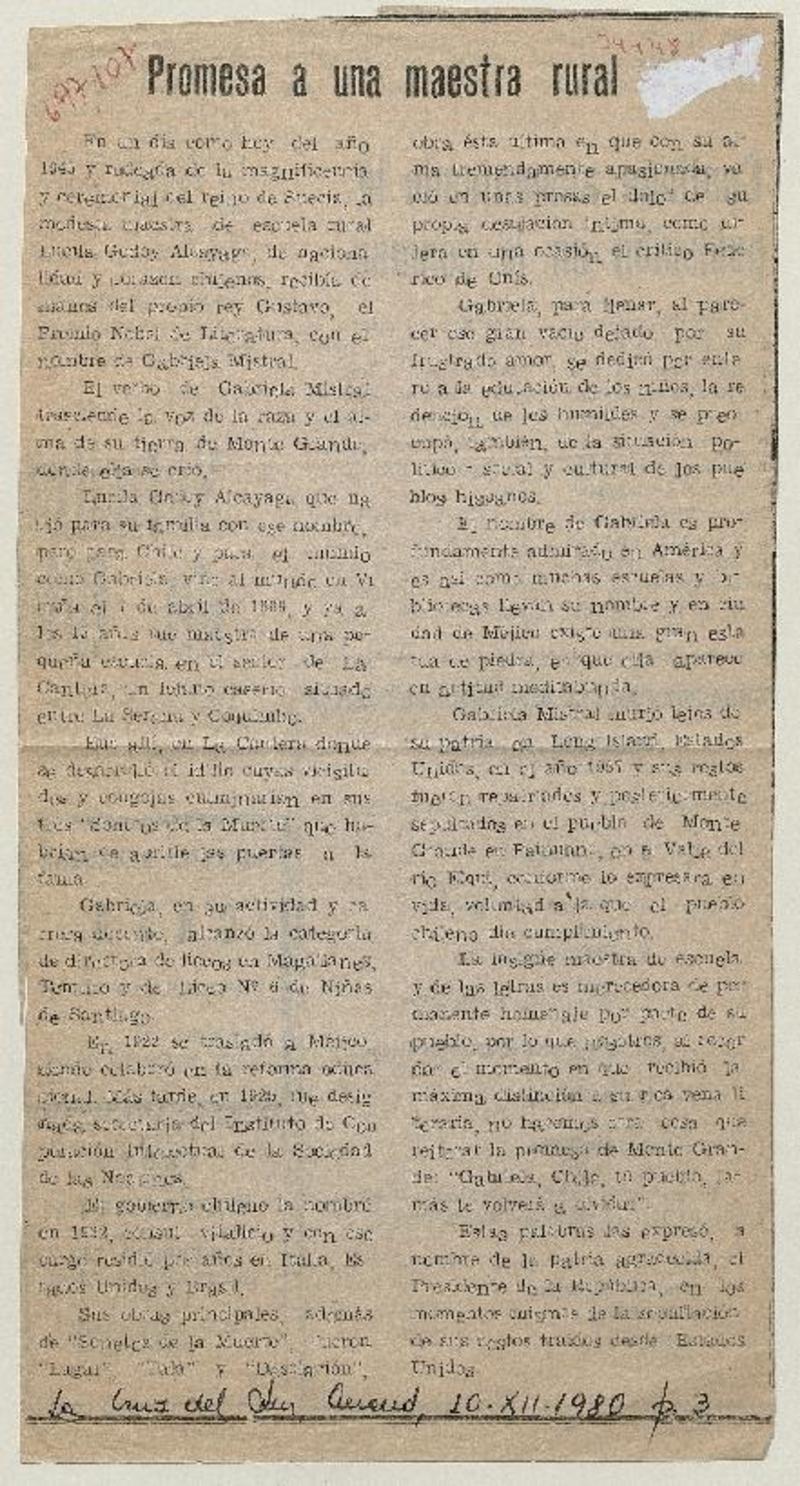 697.107
Promesa a una maestra rural
En un día como hoy del año
1945 y rodeada de la magnificencia
y ceremonial del reino de Suecia, la
modesta maestra de escuela rural
Lucila Godoy Alcayaga, de naciona
lidad y corazón chilenos, recibía de
manos del propio rey Gustavo, el
Premio Nobel de Literatura, con el
nombre de Gabriela Mistral.
El verbo de Gabriela Mistral
trasciende la voz de la raza y el al-
ma de su tierra de Monte Grande,
donde ella se crió.
Lucila Godoy Alcayaga que
para su familia con ese nombre,
pero para Chile y para el mundo
como Gabriela, vino al mundo en Vi
cuña el 7 de abril de 1889, y ya a
los años fue maestra de una pe-
queña escuela en el sector de La
Cantera, un ínfimo caserío situado
entre La Serena y Coquimbo.
Fue allí, en La Cantera donde
se desarrolló el idilio cuyas vicisitu
des y congojas culminarían en sus
tres "Sonetos de la Muerte" que ha-
brían de abrirle las puertas a la
fama.
Gabriela, en su actividad y ca
rrera docente, alcanzó la categoría
de directora de liceos en Magallanes,
Temuco y del Liceo Nº 6 de Niñas
de Santiago.
En 1922 se trasladó a Méjico,
donde colaboró en la reforma educa
cional. Más tarde, en 1925, fue desig
nada secretaria del Instituto de Coo
peración Intelectual de la Sociedad
de las Naciones.
El gobierno chileno la nombró
en 1932, cónsul vitalicio y con ese
cargo residió por años en Italia, Es
tados Unidos y Brasil.
Sus obras principales, además
de "Sonetos de la Muerte", fueron
"Lagar", "Tala" y "Desolación",
obra ésta última en que con su al-
ma tremendamente apasionada, va
ció en unas prosas el dolor de su
propia desolación íntima, como di-
jera en una ocasión el crítico Fede
rico de Onís.
Gabriela, para llenar, al pare-
cer ese gran vacío dejado por su
frustrado amor, se dedicó por ente
ro a la educación de los niños, la re
dención de los humildes y se preo
cupó, también, de la situación po-
lítico - social y cultural de los pue
blos hispanos.
El nombre de Gabriela es pro-
fundamente admirado en América y
es así como muchas escuelas y bi-
bliotecas llevan su nombre y en ciu
dad de Méjico existe una gran esta
tua de piedra, en que ella aparece
en actitud meditabunda.
Gabriela Mistral murió lejos de
su patria en Long Island, Estados
Unidos, en el año 1957 y sus restos
fueron repatriados y posteriormente
sepultados en el pueblo de Monte
Grande en Paihuano, en el Valle del
río Elqui, conforme lo expresara en
vida, voluntad a la que el pueblo
chileno dio cumplimiento.
La insigne maestra de escuela
y de las letras es merecedora de per
manente homenaje por parte de su
pueblo, por lo que nosotros, al recor
dar el momento en que recibió la
máxima distinción a su rica vena li
teraria, no hacemos otra cosa que
reiterar la promesa de Monte Gran-
de: "Gabriela, Chile, tu pueblo, ja-
más te volverá a olvidar".
Estas palabras las expresó, a
nombre de la patria agradecida, el
Presidente de la República, en los
momentos mismos de la sepultación
de sus restos traídos desde Estados
Unidos.
La Cruz del Sur, Ancud, 10-XII-1980 p. 3